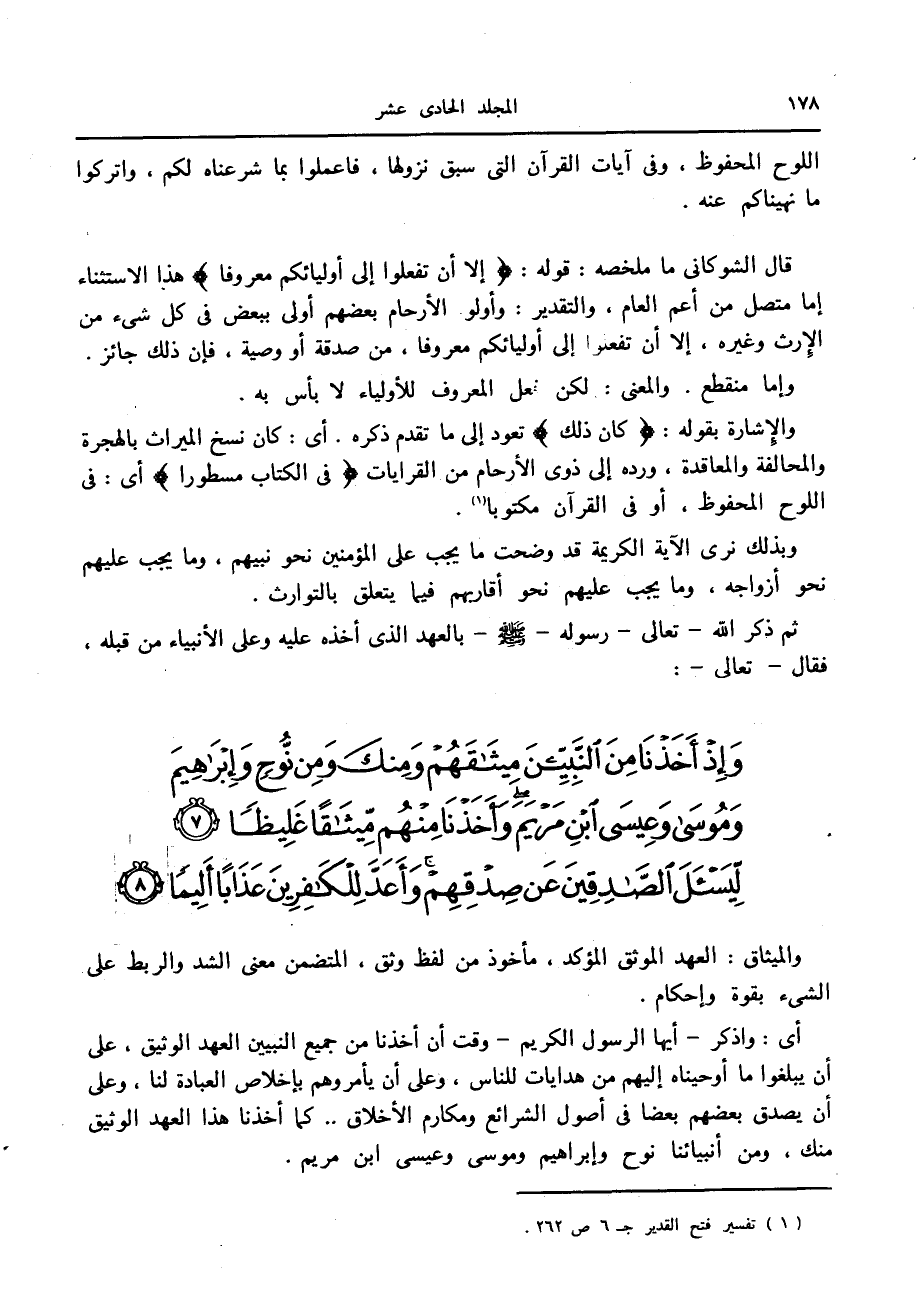 ١٧٨
المجلد الحادى عشر
اللوح المحفوظ ، وفى آيات القرآن التى سبق نزولها ، فاعملوا بما شرعناه لكم ، واتركوا
ما نهيناكم عنه .
قال الشوكانى ما ملخصه : قوله : ﴿ إلا أن تفعلوا إلى أوليائكم معروفا ﴾ هذا الاستثناء
إما متصل من أعم العام ، والتقدير : وأولو الأرحام بعضهم أولى ببعض فى كل شىء من
الإرث وغيره ، إلا أن تفعلوا إلى أوليائكم معروفا ، من صدقة أو وصية ، فإن ذلك جائز .
وإما منقطع . والمعنى : لكن فعل المعروف للأولياء لا بأس به .
والإشارة بقوله : ﴿ كان ذلك ﴾ تعود إلى ما تقدم ذكره . أى : كان نسخ الميراث بالهجرة
والمحالفة والمعاقدة ، ورده إلى ذوى الأرحام من القرابات ﴿ فى الكتاب مسطورا ﴾ أى : فى
اللوح المحفوظ ، أو فى القرآن مكتوبا(١) .
وبذلك نرى الآية الكريمة قد وضحت ما يجب على المؤمنين نحو نبيهم ، وما يجب عليهم
نحو أزواجه ، وما يجب عليهم نحو أقاربهم فيما يتعلق بالتوارث .
ثم ذكر الله – تعالى – رسوله – ﷺ – بالعهد الذى أخذه عليه وعلى الأنبياء من قبله ،
فقال – تعالى – :
وَإِذْ أَخَذْنَا مِنَ ٱلنَّبِيِّـۧنَ مِيثَـٰقَهُمْ وَمِنكَ وَمِن نُّوحٍ وَإِبْرَٰهِيمَ
وَمُوسَىٰ وَعِيسَى ٱبْنِ مَرْيَمَ ۖ وَأَخَذْنَا مِنْهُم مِّيثَـٰقًا غَلِيظًا ٧
لِّيَسْـَٔلَ ٱلصَّـٰدِقِينَ عَن صِدْقِهِمْ ۚ وَأَعَدَّ لِلْكَـٰفِرِينَ عَذَابًا أَلِيمًا ٨
والميثاق : العهد الموثق المؤكد ، مأخوذ من لفظ وثق ، المتضمن معنى الشد والربط على
الشىء بقوة وإحكام .
أى : واذكر – أيها الرسول الكريم – وقت أن أخذنا من جميع النبيين العهد الوثيق ، على
أن يبلغوا ما أوحيناه إليهم من هدايات للناس ، وعلى أن يأمروهم بإخلاص العبادة لنا ، وعلى
أن يصدق بعضهم بعضا فى أصول الشرائع ومكارم الأخلاق .. كما أخذنا هذا العهد الوثيق
منك ، ومن أنبيائنا نوح وإبراهيم وموسى وعيسى ابن مريم .
( ١ ) تفسير فتح القدير جـ ٦ ص ٢٦٢ .